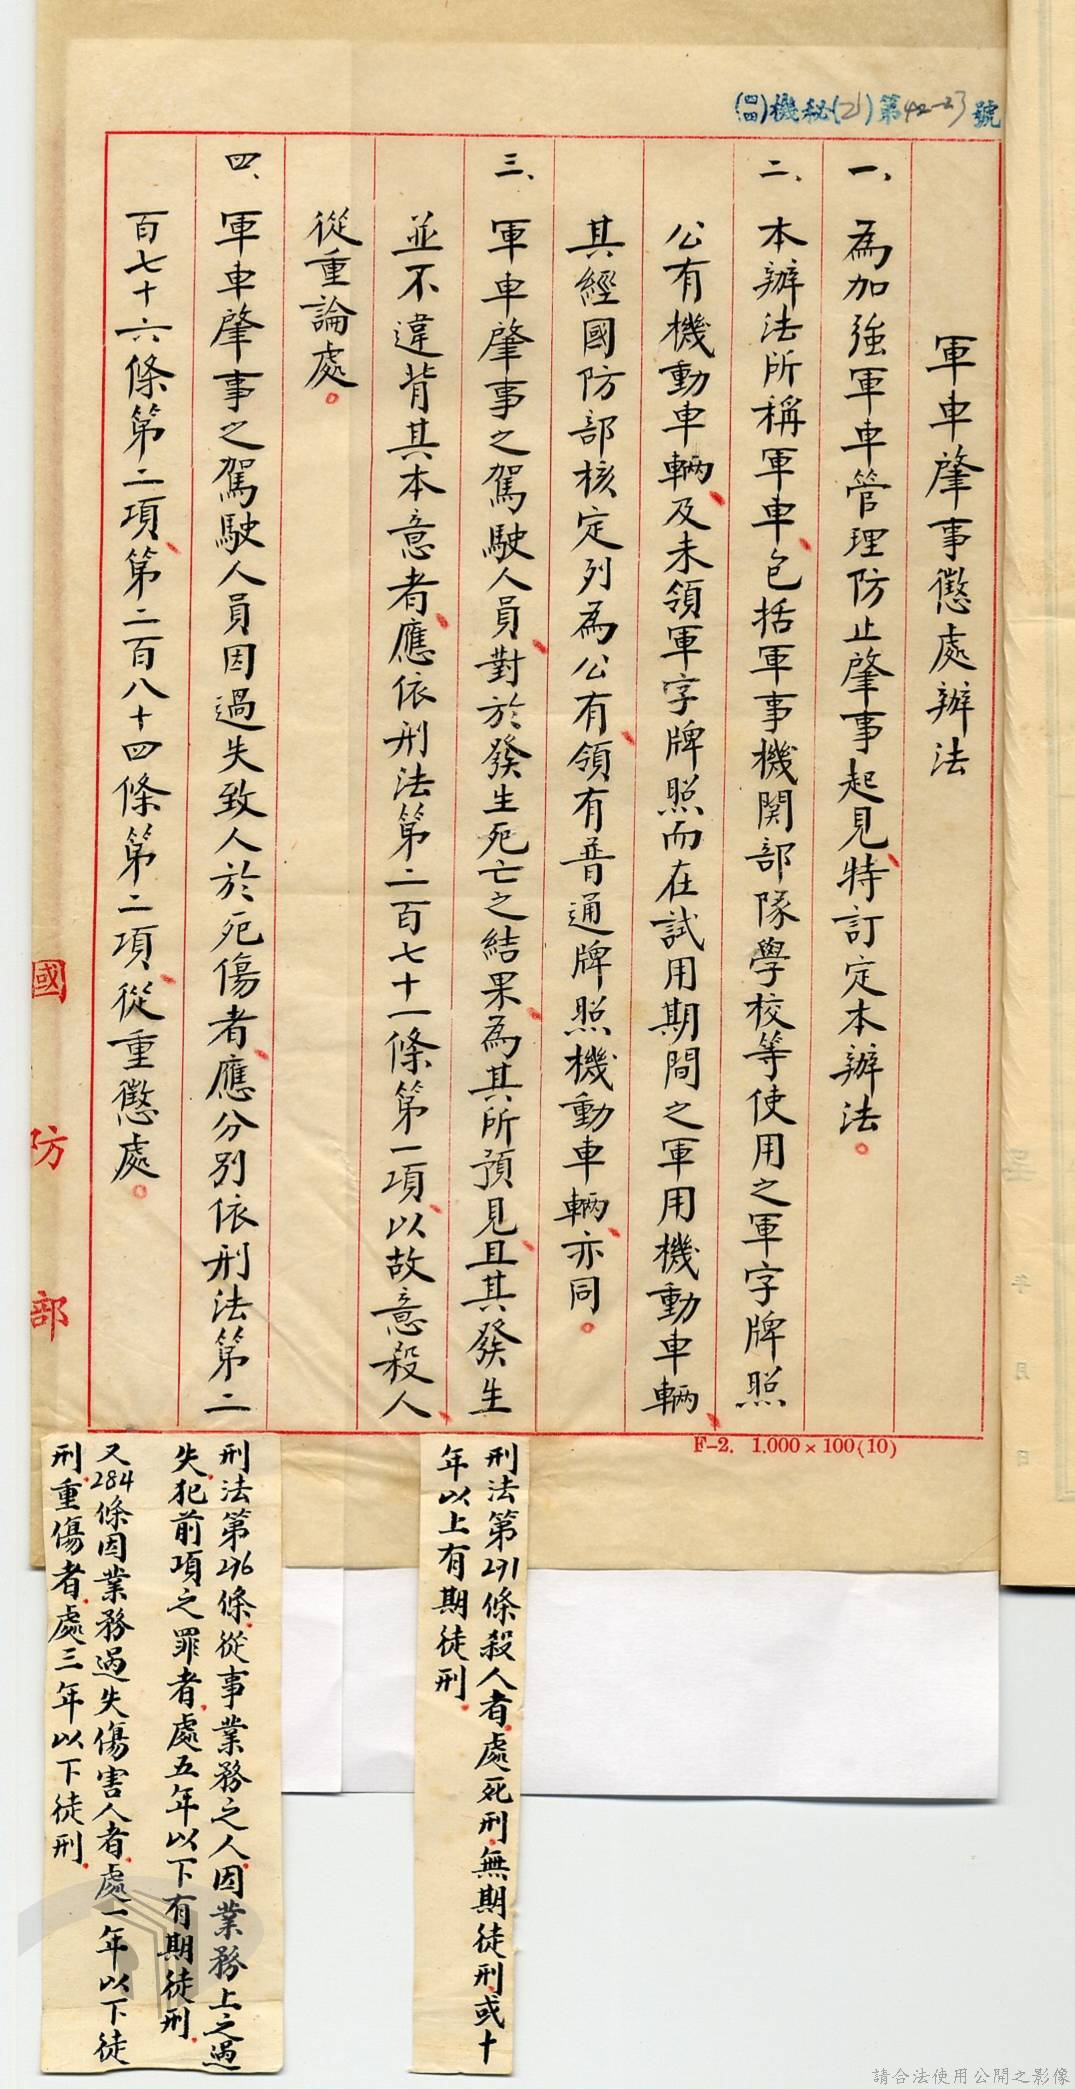 (四四)機秘(乙)第42-23號
軍車肇事懲處辦法
一、為加強軍車管理防止肇事起見、特訂定本辦法。
二、本辦法所稱軍車、包括軍事機関部隊學校等使用之軍字牌照
公有機動車輛、及未領軍字牌照而在試用期間之軍用機動車輛、
其經國防部核定列為公有、領有普通牌照機動車輛、亦同。
三、軍車肇事之駕駛人員、對於發生死亡之結果、為其所預見、且其發生
並不違背其本意者、應依刑法第二百七十一條第一項、以故意殺人、
從重論處。
四、軍車肇事之駕駛人員因過失致人於死傷者、應分別依刑法第二
百七十六條第二項、第二百八十四條第二項、從重懲處。
國防部
F-2. 1.000×100(10)
刑法第271條殺人者、處死刑、無期徒刑、或十
年以上有期徒刑、
刑法第276條、從事業務之人、因業務上之過
失、犯前項之罪者、處五年以下有期徒刑、
又284條因業務過失傷害人者、處一年以下徒
刑、重傷者、處三年以下徒刑、
請合法使用公開之影像